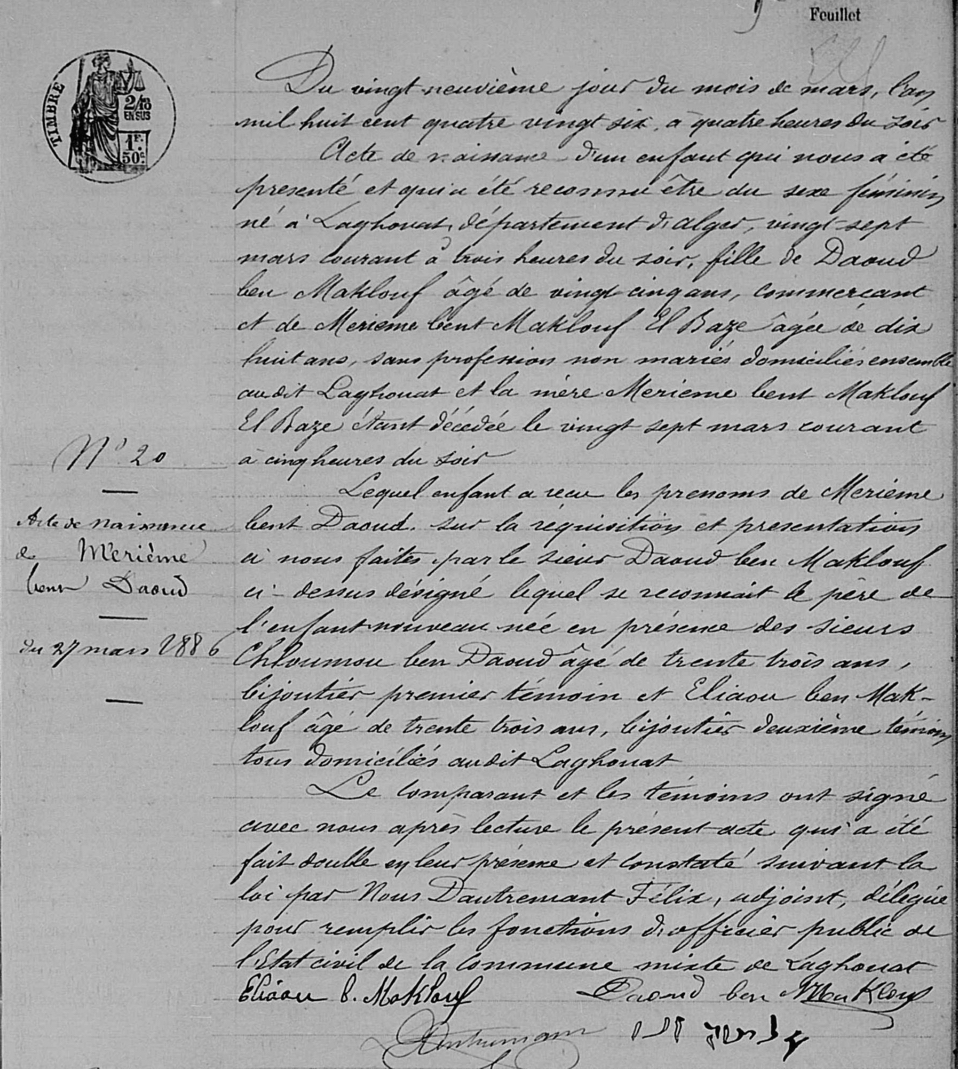 Feuillet
TIMBRE
2/10
EN SUS
1F.
50c.
Du vingt neuvième jour du mois de mars, l'an
mil huit cent quatre vingt six, à quatre heures du soir
Acte de naissance d'un enfant qui nous a été
presenté et qui a été reconnu être du sexe féminin
né à Laghouat, département d'alger, vingt sept
mars courant à trois heures du soir, fille de Daoud
ben Maklouf âgé de vingt cinq ans, commerçant
et de Merieme bent Maklouf El Baze âgée de dix
huit ans, sans profession non mariés domiciliés ensemble
audit Laghouat et la mère Merieme bent Maklouf
El Baze étant décédée le vingt sept mars courant
à cinq heures du soir
Lequel enfant a reçu les prenoms de Merième
bent Daoud. sur la réquisition et presentation
à nous faites par le sieur Daoud ben Maklouf
ci-dessus désigné lequel se reconnait le père de
l'enfant nouveau née en présence des sieurs
Chloumou ben Daoud âgé de trente trois ans,
bijoutier premier témoin et Eliaou ben Mak-
louf âgé de trente trois ans, bijoutier deuxième témoin
tous domiciliés audit Laghouat
Le comparant et les témoins ont signé
avec nous après lecture le présent acte qui a été
fait double en leur présence et constaté suivant la
loi par Nous Dautremant Félix, adjoint, délégué
pour remplir les fonctions d'officier public de
l'Etat civil de la Commune mixte de Laghouat
Eliaou b. Maklouf Daoud ben Maklouf
N° 20
Acte de naissance
de Merième
bent Daoud
du 27 mars 1886